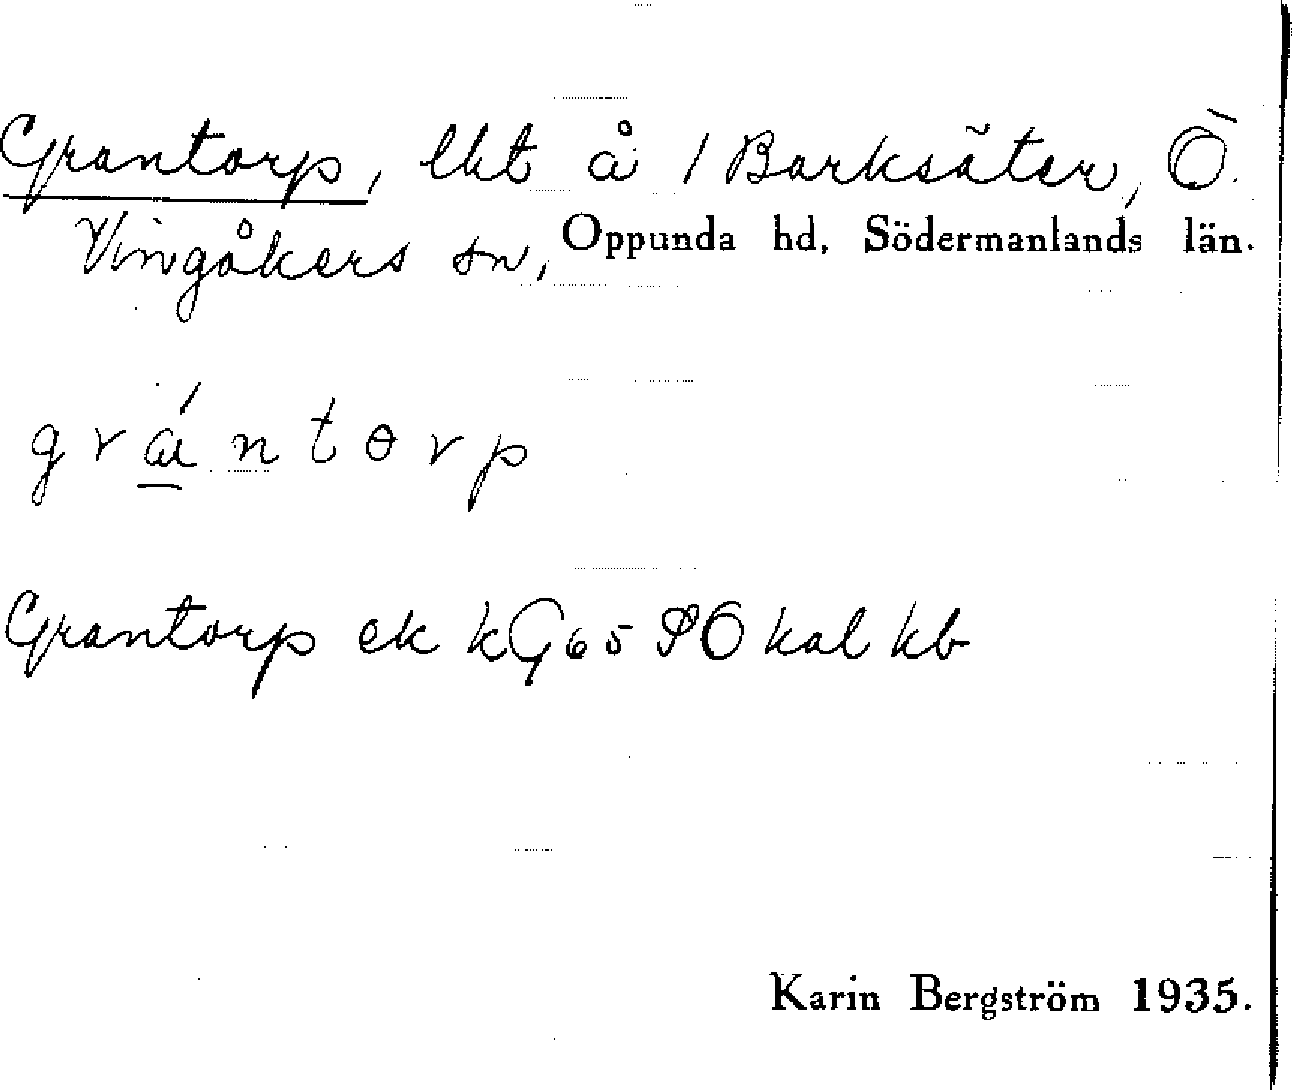 Grantorp, lht å 1 Barksäter, Ö.
Vingåkers sn, Oppunda hd, Södermanlands län.
grántorp
Grantorp ek kG 65 SO kal kb
Karin Bergström 1935.